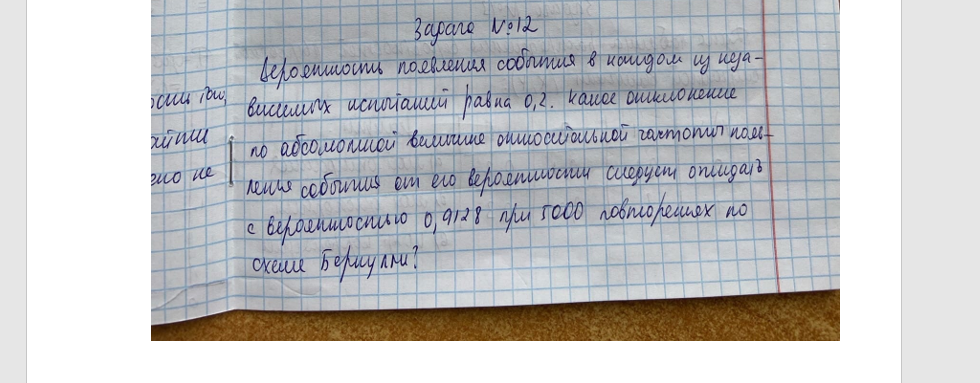 Задача №12
Вероятность появления события в каждом из неза-
висимых испытаний равна 0,2. Какое отклонение
по абсолютной величине относительной частоты появ-
ления события от его вероятности следует ожидать
с вероятностью 0,9128 при 5000 повторениях по
схеме Бернулли?
айти
но не